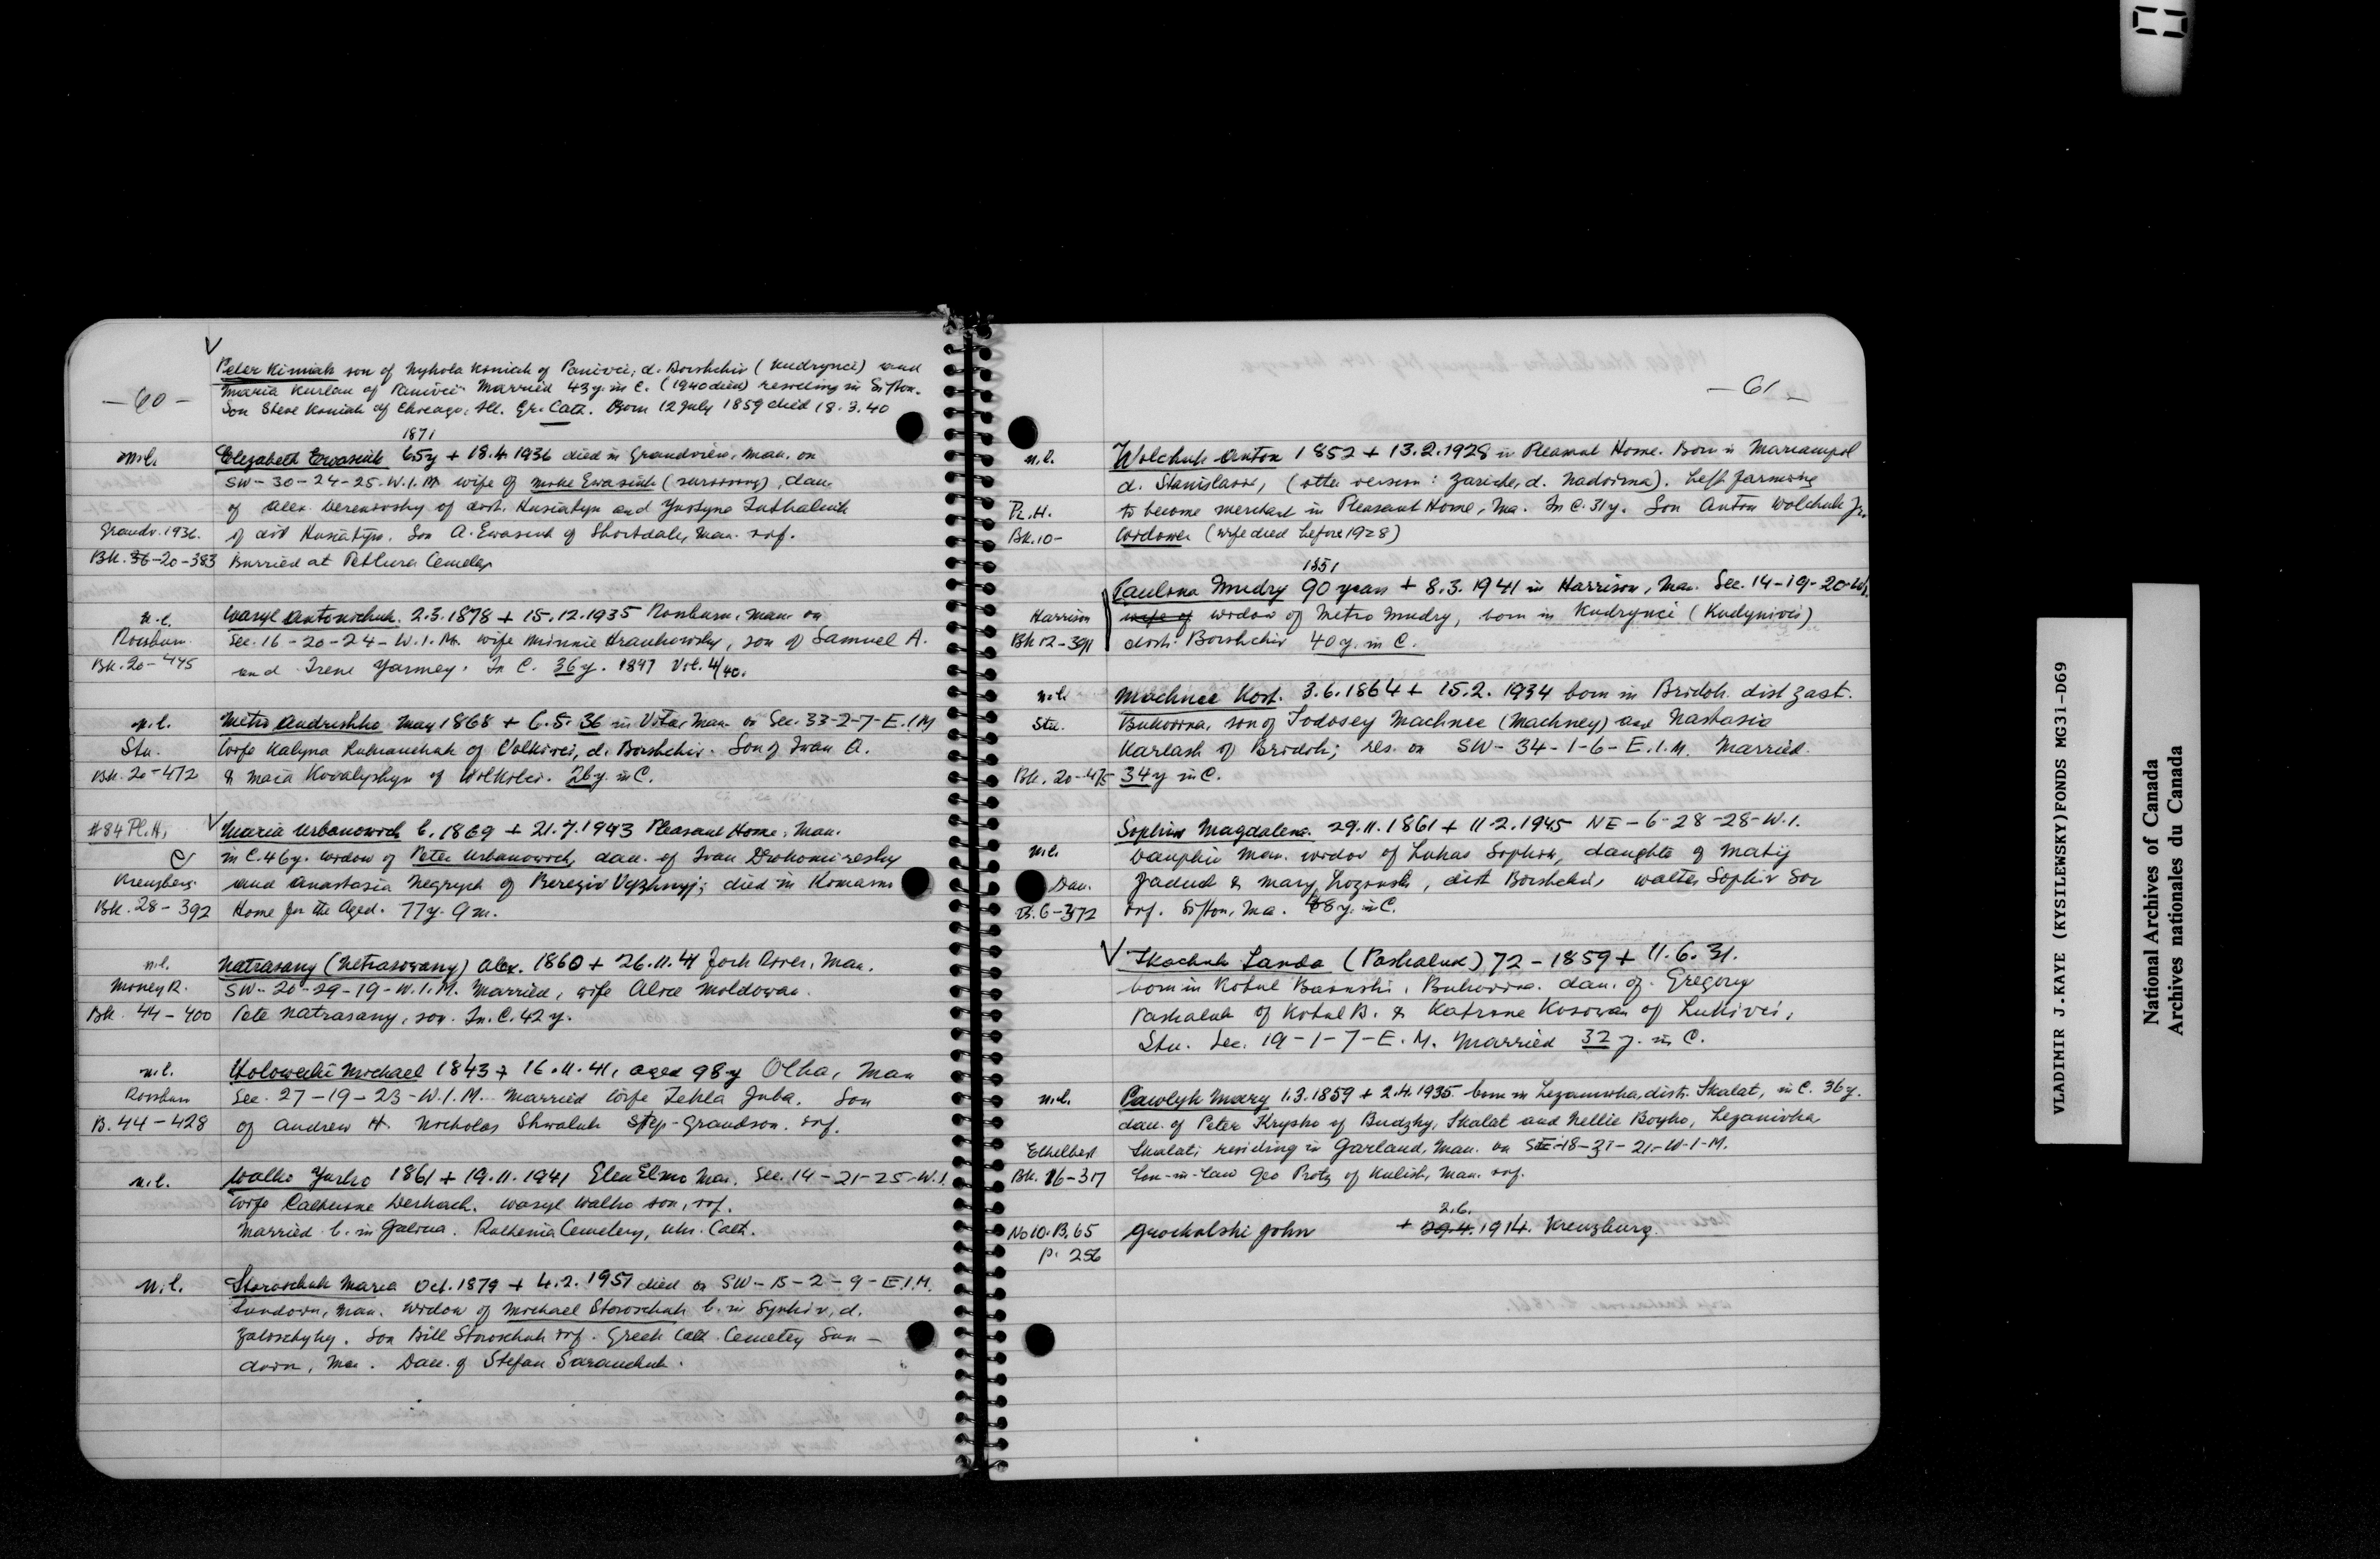 — 60 —
Peter Kiniak son of Nykola Koniak of Panivci, d. Borshchiv (Kudrynci) and
Maria Kurlan of Panivci. Married 43 y. in C. (1940 died) residing in Sifton.
Son Steve Koniak of Chicago, Ill. Gr. Cath. Born 12 July 1859 died 18.3.40
1871
n.l. Elizabeth Ewasiuk 65y + 18.4.1936 died in Grandview, Man. on
SW-30-24-25-W.I.M. wife of Mike Ewasiuk (surviving), dau.
of Alex. Verenovsky of dist. Husiatyn and Justyna
Grandv. 1936. of dist Husiatyn. Son A. Ewasiuk of Shortdale, Man. inf.
Bk. 36-20-383 Burried at Petlura Cemetery
n.l. Wasyl Antonichuk. 2.3.1878 + 15.12.1935 Rossburn, Man. on
Rossburn. Sec. 16-20-24-W.I.M. wife Minnie Hrankowsky, son of Samuel A.
Bk. 20-445 and Irene Yarmey. In C. 36y. 1897 Vol. 4/40.
n.l. Metro Andrushko May 1868 + 6.5.36 in Vita, Man on Sec. 33-2-7-E.I.M
Stu. Wife Kalyna Romanchuk of Volkivci, d. Borshchiv. Son of Iwan A.
Bk. 20-472 & Maria Kovalyshyn of Wolkivci. 26y. in C.
#84 Pl.H. Maria Urbanowich b. 1869 + 21.7.1943 Pleasant Home, Man.
C in C. 46y. widow of Peter Urbanowich, dau. of Ivan Drohomiresky
Kreuzberg and Anastasia Negrych of Bereziv Vyzhnyj; died in Komarno
Bk. 28-392 Home for the Aged. 77y. 9m.
n.l. Natrasany (Netrasowany) Alex. 1860 + 26.11.41 Fork River, Man.
Money R. SW-20-29-19-W.I.M. Married, wife Alice Moldowan.
Bk. 44-400 Pete Natrasany, son. In C. 42y.
n.l. Holowecki Michael 1843 + 16.11.41, aged 98y Olha, Man
Rossburn Sec. 27-19-23-W.I.M. Married wife Tekla Juba. Son
B. 44-428 of Andrew H. Nicholas Shwaluk Step-Grandson. inf.
n.l. Walko Yurko 1861 + 19.11.1941 Glen Elmo Man. Sec. 14-21-25-W.I.
Wife Catherine Derkach. Wasyl Walko son, inf.
Married b. in Galicia. Ruthenia Cemetery, Ukr. Cath.
n.l. Storoschuk Maria Oct. 1879 + 4.2.1951 died on SW-15-2-9-E.I.M.
Sundown, Man. Widow of Michael Storoschuk b. in Synkiv, d.
Zaloschyky. Son Bill Storoschuk inf. Greek Cath. Cemetery Sun-
down, Man. Dau. of Stefan Saranchuk.
— 61 —
n.l. Wolchuk Anton 1852 + 13.2.1928 in Pleasant Home. Born in Mariampol
d. Stanislaviv, (other version: Zariche, d. Nadvirna). Left farming
Pl. H. to become merchant in Pleasant Home, Ma. In C. 31y. Son Anton Wolchuk Jr.
Bk. 10- widower (wife died before 1928)
1851
Paulina Mudry 90 years + 8.3.1941 in Harrison, Man. Sec. 14-19-20-W.
Harrison wife of widow of Metro Mudry, born in Kudrynci (Kudynivci)
Bk 12-391 distr. Borshchiv 40y. in C.
n.l. Machnee Kost. 3.6.1864 + 15.2.1934 born in Bridok. dist Zast.
Stu. Bukovina, son of Todosey Machnee (Machney) and Nastasia
Karlash of Bridok; res. on SW-34-1-6-E.I.M. Married.
Bk. 20-475 34y in C.
Sophiw Magdalena. 29.11.1861 + 11.2.1945 NE-6-28-28-W.I.
n.l. Dauphin Man. widow of Lukas Sophiw, daughter of Matij
Dau. Jadud & Mary Lozonski, dist Borshchiv, Walter Sophiw Son
B. 6-372 inf. Sifton, Ma. 48y. in C.
Tkachuk Sanda (Paskaluk) 72 - 1859 + 11.6.31.
born in Kotul Bainski, Bukovina. dau. of Gregory
Paskaluk of Kotul B. & Katrine Kosowan of Lukivci,
Stu. Sec. 19-1-7-E.M. Married 32 y. in C.
n.l. Pawlyk Mary 1.3.1859 + 2.4.1935 born in Lezanivka, distr. Skalat, in C. 36y.
dau. of Peter Krysko of Budzky, Skalat and Nellie Boyko, Lezanivka
Ethelbert Skalat; residing in Garland, Man. on SE-18-31-21-W-I-M.
Bk. 16-317 Son-in-law Geo Protz of Kulish, Man. inf.
2.6.
No 10.B.65 Grochalski John + 29.4. 1914. Kreuzburg.
p. 256
VLADIMIR J. KAYE (KYSILEWSKY) FONDS MG31-D69
National Archives of Canada
Archives nationales du Canada